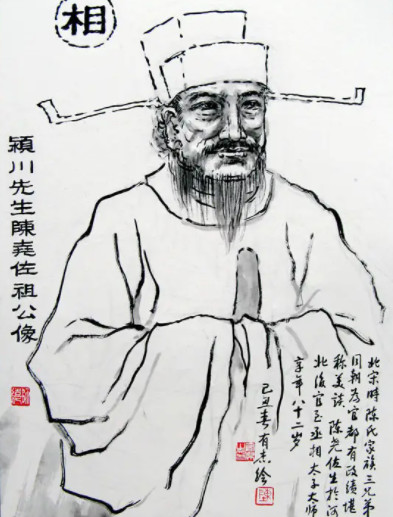 相
穎川先生陳堯佐祖公像
北宋时陈氏家族三兄弟
同朝为官都有政绩堪
称美谈 陈尧佐生於河
北後官至丞相太子大师
享年八十二岁
己丑春有志绘